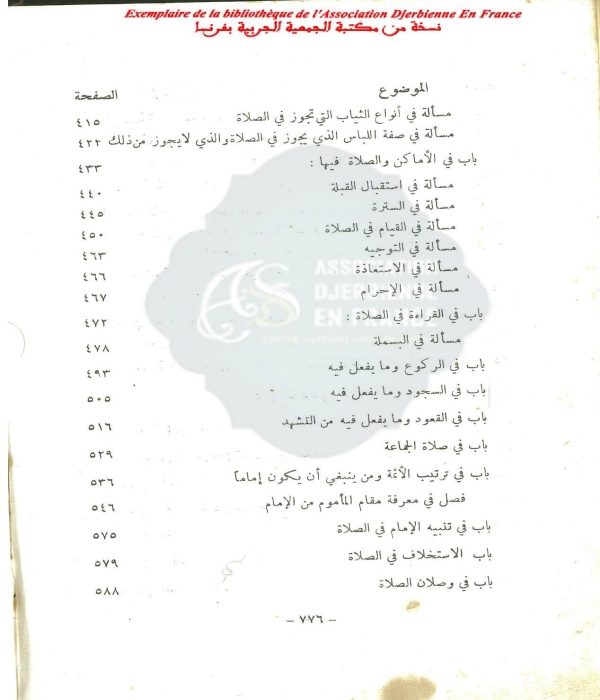 Exemplaire de la bibliothèque de l'Association Djerbienne En France
نسخة من مكتبة الجمعية الجربية بفرنسا
الموضوع الصفحة
مسألة في أنواع الثياب التي تجوز في الصلاة ٤١٥
مسألة في صفة اللباس الذي يجوز في الصلاة والذي لايجوز من ذلك ٤٢٢
باب في الأماكن والصلاة فيها : ٤٣٣
مسألة في استقبال القبلة ٤٤٠
مسألة في السترة ٤٤٥
مسألة في القيام في الصلاة : ٤٥٠
مسألة في التوجيه ٤٦٣
مسألة في الاستعاذة ٤٦٦
مسألة في الإحرام ٤٦٧
باب في القراءة في الصلاة : ٤٧٢
مسألة في البسملة ٤٧٨
باب في الركوع وما يفعل فيه ٤٩٣
باب في السجود وما يفعل فيه ٥٠٥
باب في القعود وما يفعل فيه من التشهد ٥١٦
باب في صلاة الجماعة ٥٢٩
باب في ترتيب الأئمة ومن ينبغي أن يكون إماماً ٥٣٦
فصل في معرفة مقام المأموم من الإمام ٥٤٦
باب في تنبيه الإمام في الصلاة ٥٧٥
باب الاستخلاف في الصلاة ٥٧٩
باب في وصلان الصلاة ٥٨٨
– ٧٧٦ –
ASSOCIATION
DJERBIENNE
EN FRANCE